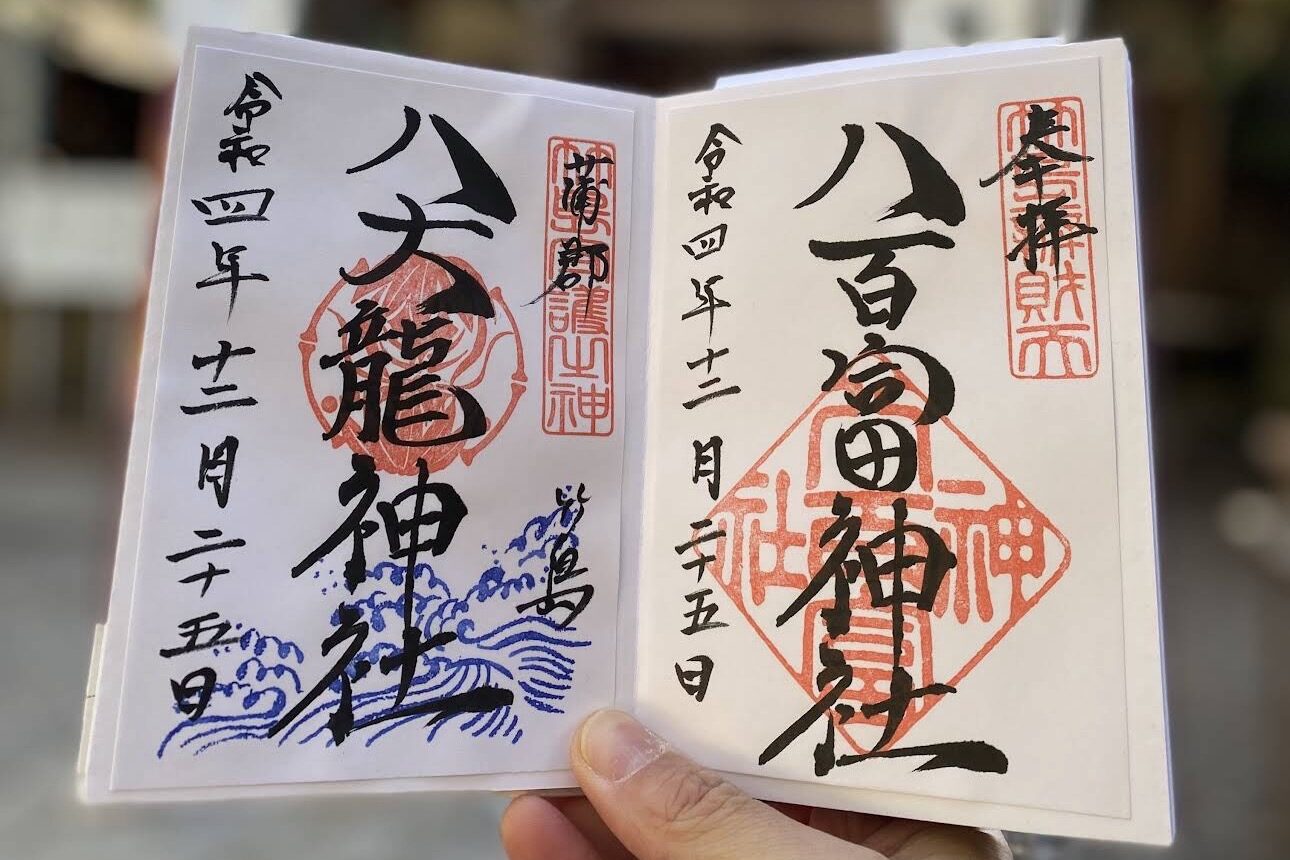 奉拝
財天
八百富神社
神
社
令和四年十二月二十五日
蒲郡
竹島
護之神
八大龍神社
令和四年十二月二十五日